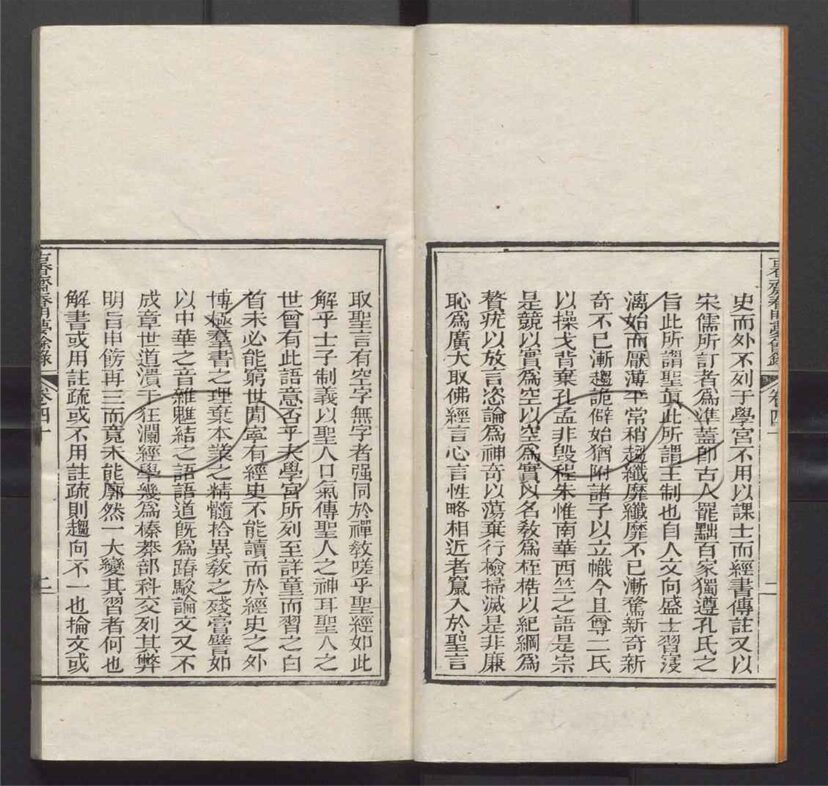 史而外不列于學宮不用以課士而經書傳註又以
宋儒所訂者爲準蓋卽古人罷黜百家獨遵孔氏之
旨此所謂聖眞此所謂王制也自人文向盛士習寖
漓始而厭薄平常稍趨纖靡纖靡不已漸騖新奇新
奇不已漸趨詭僻始猶附諸子以立幟今且尊二氏
以操戈背棄孔孟非毀程朱惟南華西竺之語是宗
是競以實爲空以空爲實以名教爲桎梏以紀綱爲
贅疣以放言恣論爲神奇以蕩棄行檢掃滅是非廉
恥爲廣大取佛經言心言性略相近者竄入於聖言
取聖言有空字無字者强同於禪教嗟乎聖經如此
解乎士子制義以聖人口氣傳聖人之神耳聖人之
世曾有此語意否乎夫學宮所列至詳童而習之白
首未必能窮世間寧有經史不能讀而於經史之外
博極羣書之理棄本業之精髓拾異教之殘膏譬如
以中華之音雜魋結之語語道旣爲踳駁論文又不
成章世道潰于狂瀾經學幾爲榛莽部科交列其弊
明旨申飭再三而竟未能廓然一大變其習者何也
解書或用註疏或不用註疏則趨向不一也掄文或
春明夢餘錄
卷四十
二